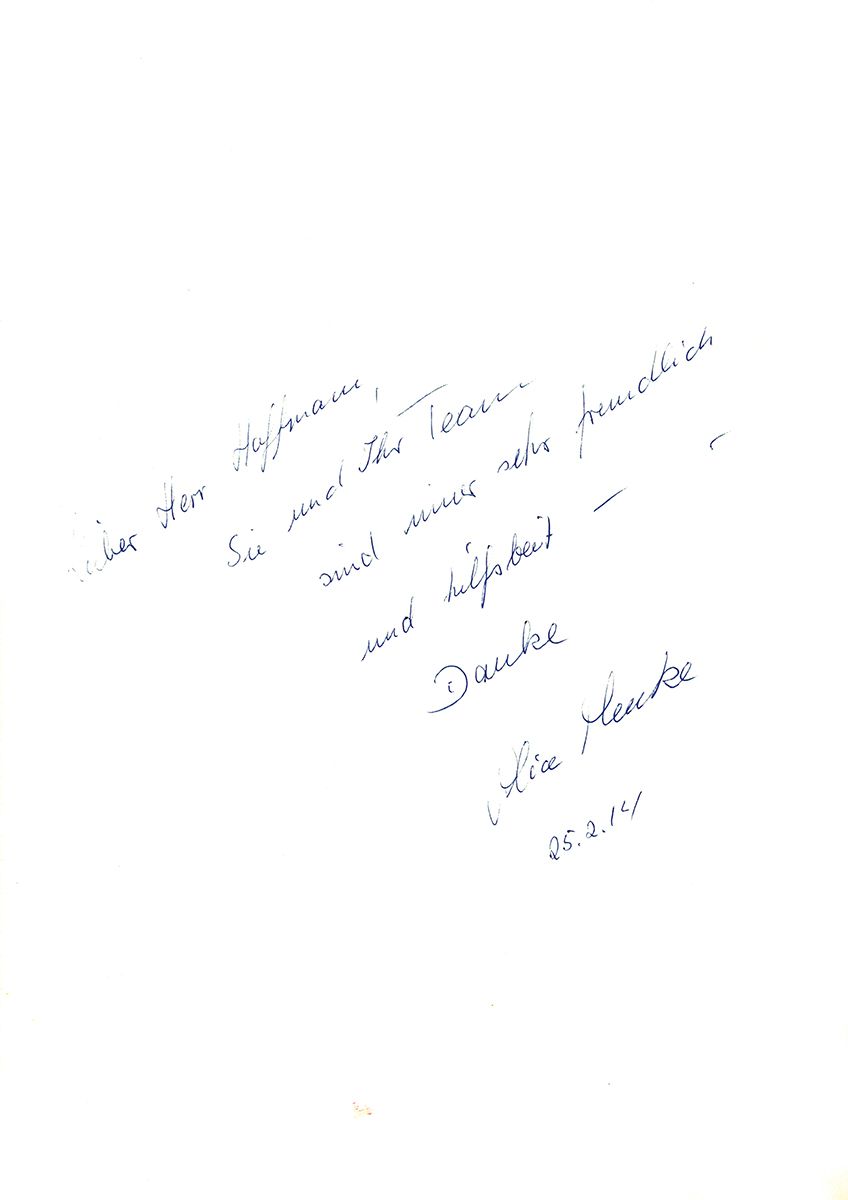 Lieber Herr Hoffmann,
Sie und Ihr Team
sind immer sehr freundlich
und hilfsbereit –
Danke
Menke
25.2.14